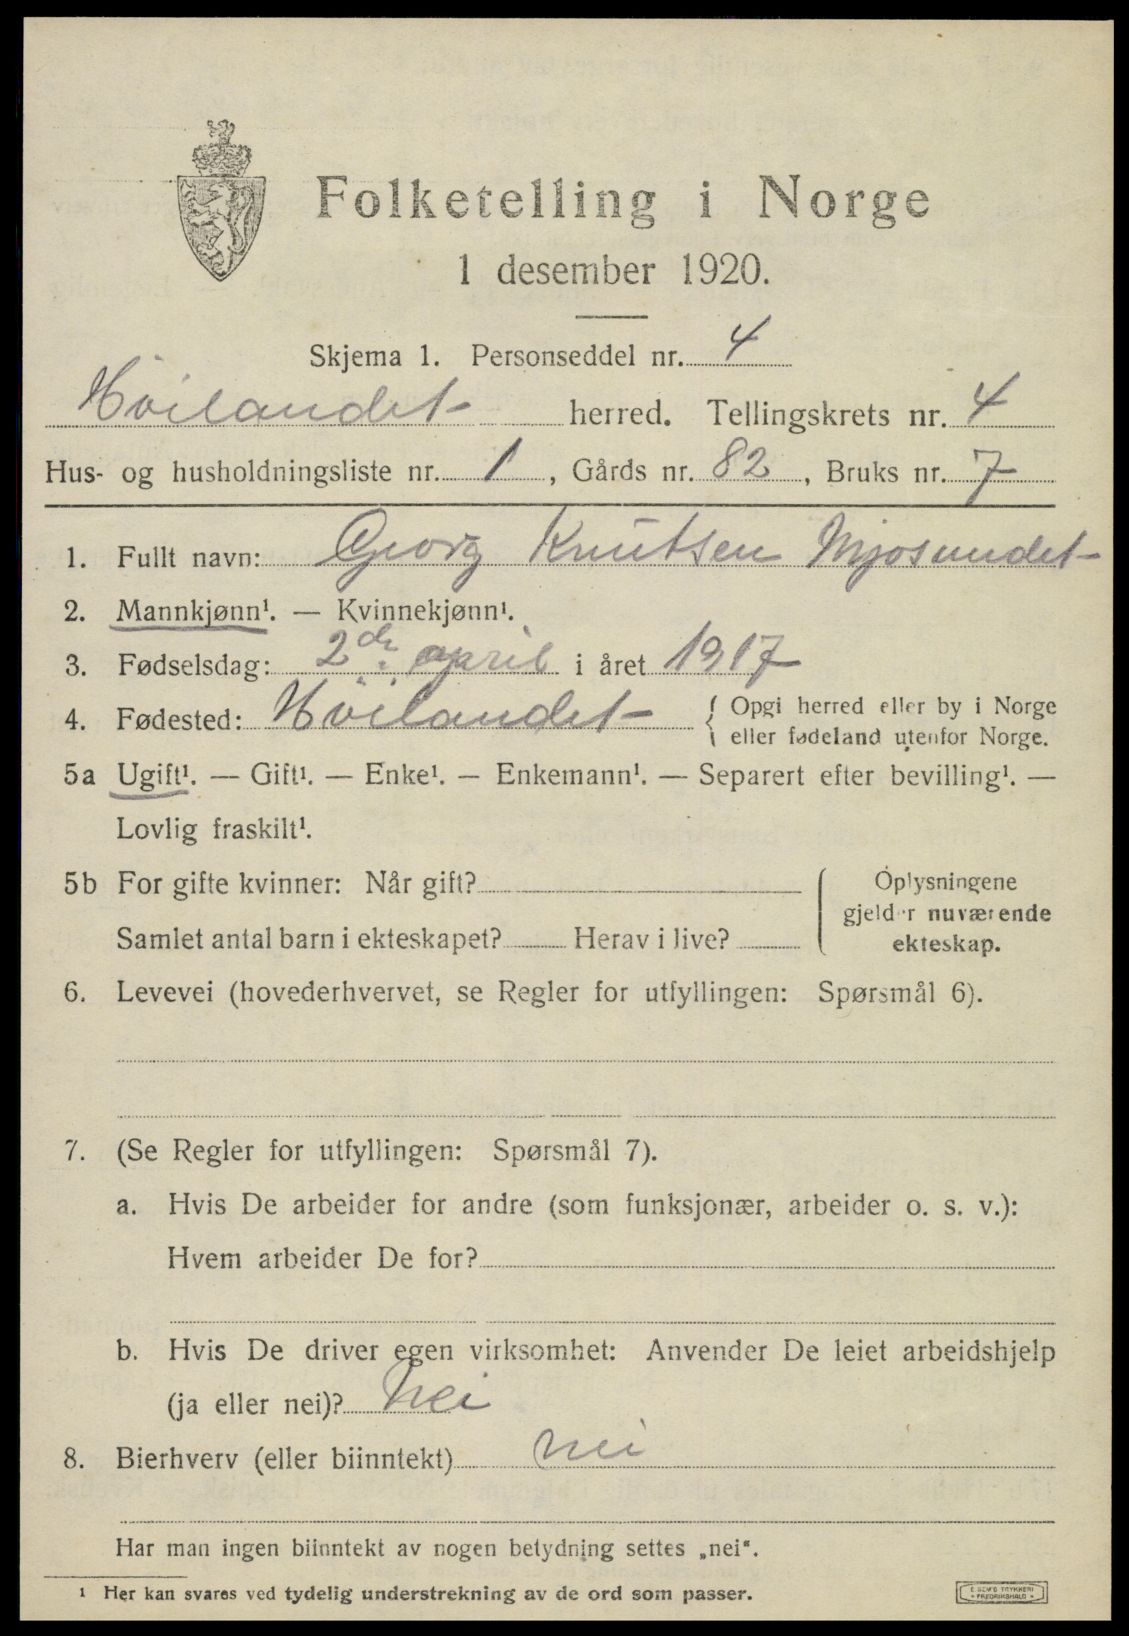 Folketelling i Norge
1 desember 1920.
Skjema 1. Personseddel nr. 4
Höilandet herred. Tellingskrets nr. 4
Hus- og husholdningsliste nr. 1, Gårds nr. 82, Bruks nr. 7
1. Fullt navn: Georg Knutsen Mjosundet
2. Mannkjønn¹. — Kvinnekjønn¹.
3. Fødselsdag: 2de april i året 1917
4. Fødested: Höilandet { Opgi herred eller by i Norge
eller fødeland utenfor Norge.
5a Ugift¹. — Gift¹. — Enke¹. — Enkemann¹. — Separert efter bevilling¹. —
Lovlig fraskilt¹.
5b For gifte kvinner: Når gift?
Samlet antal barn i ekteskapet? Herav i live?
Oplysningene
gjelder nuværende
ekteskap.
6. Levevei (hovederhvervet, se Regler for utfyllingen: Spørsmål 6).
7. (Se Regler for utfyllingen: Spørsmål 7).
a. Hvis De arbeider for andre (som funksjonær, arbeider o. s. v.):
Hvem arbeider De for?
b. Hvis De driver egen virksomhet: Anvender De leiet arbeidshjelp
(ja eller nei)? Nei
8. Bierhverv (eller biinntekt) nei
Har man ingen biinntekt av nogen betydning settes „nei“.
¹ Her kan svares ved tydelig understrekning av de ord som passer.